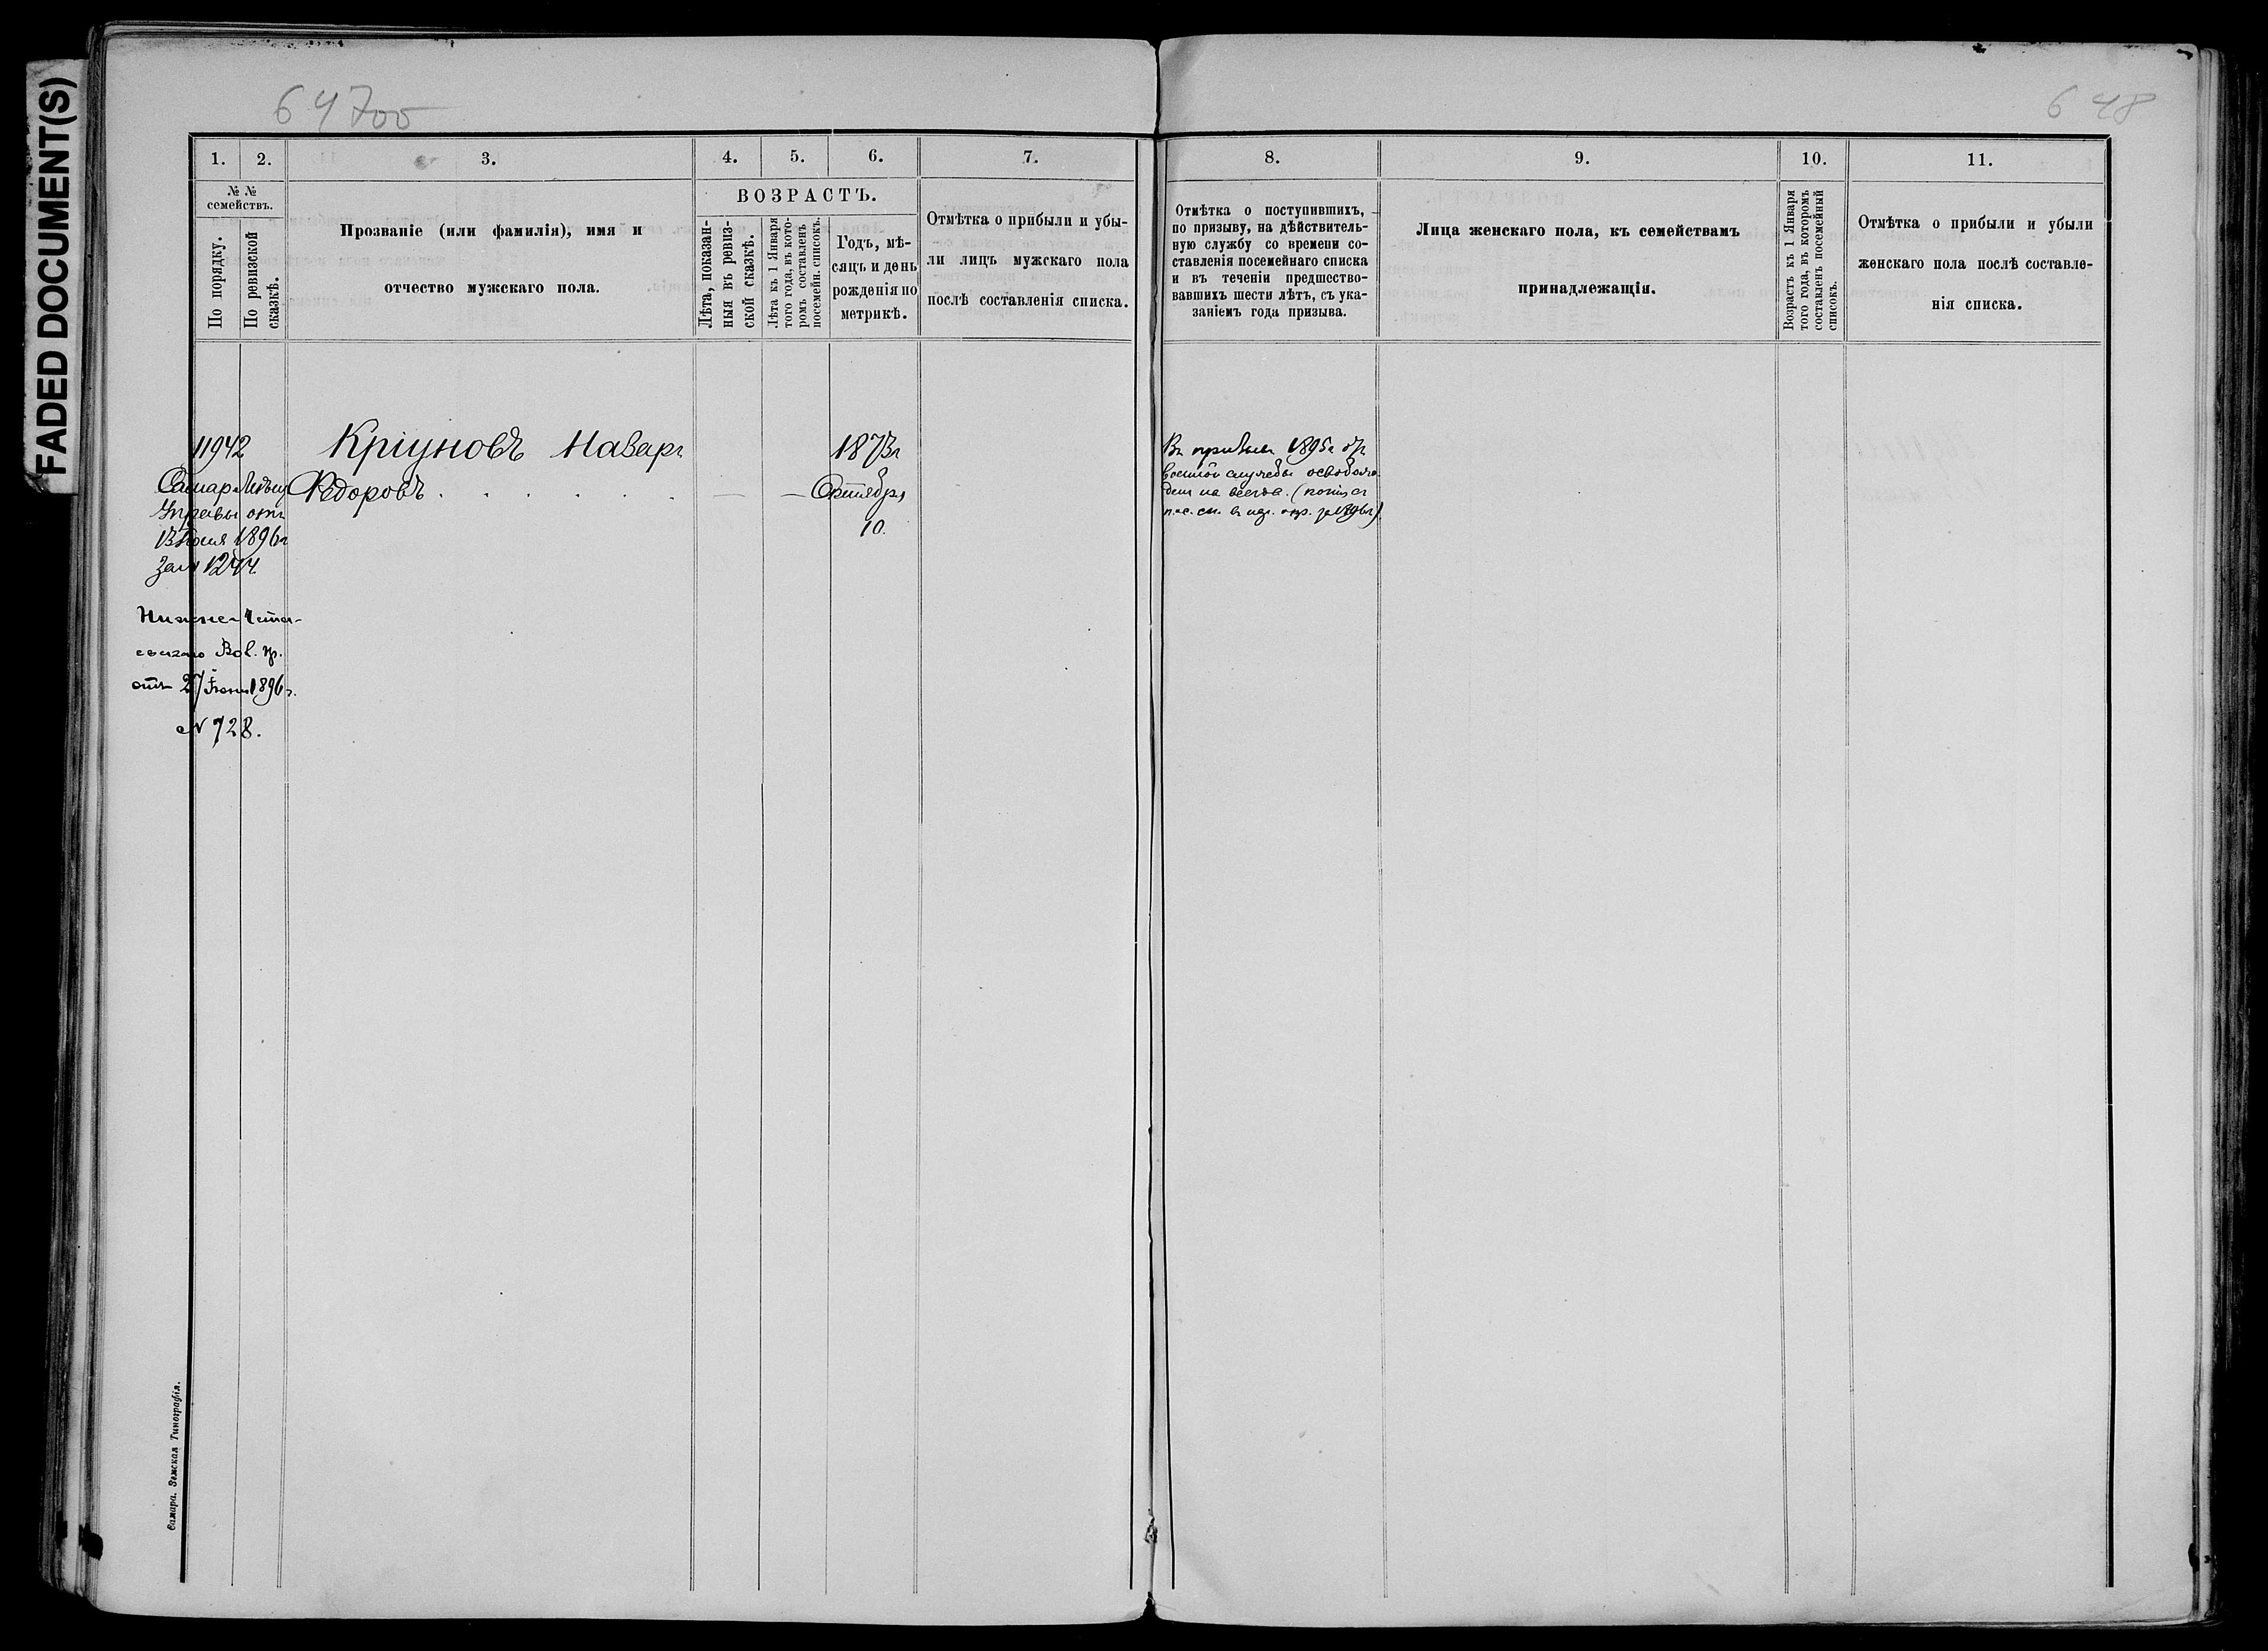 FADED DOCUMENT(S)
64700
648
1.
2.
3.
4.
5.
6.
7.
8.
9.
10.
11.
№ №
семействъ.
По порядку.
По ревизской
сказкѣ.
Прозваніе (или фамилія), имя и
отчество мужскаго пола.
ВОЗРАСТЪ.
Лѣта, показан-
ныя въ ревиз-
ской сказкѣ.
Лѣта къ 1 Января
того года, въ кото-
ромъ составленъ
посемейн. списокъ.
Годъ, мѣ-
сяцъ и день
рожденія по
метрикѣ.
Отмѣтка о прибыли и убы-
ли лицъ мужскаго пола
послѣ составленія списка.
Отмѣтка о поступившихъ,
по призыву, на дѣйствитель-
ную службу со времени со-
ставленія посемейнаго списка
и въ теченіи предшество-
вавшихъ шести лѣтъ, съ ука-
заніемъ года призыва.
Лица женскаго пола, къ семействамъ
принадлежащія.
Возрастъ къ 1 Января
того года, въ которомъ
составленъ посемейный
списокъ.
Отмѣтка о прибыли и убыли
женскаго пола послѣ составле-
нія списка.
11942
Управы отъ
1896г
1244.
Криуновъ Назаръ
Федоровъ
1873г
Октября
10.
Въ призывъ 1895г отъ
военной службы освобож-
денъ на всегда. (
Вол. пр.
отъ 27 1896г.
№ 728.
Самара. Земская Типографія.